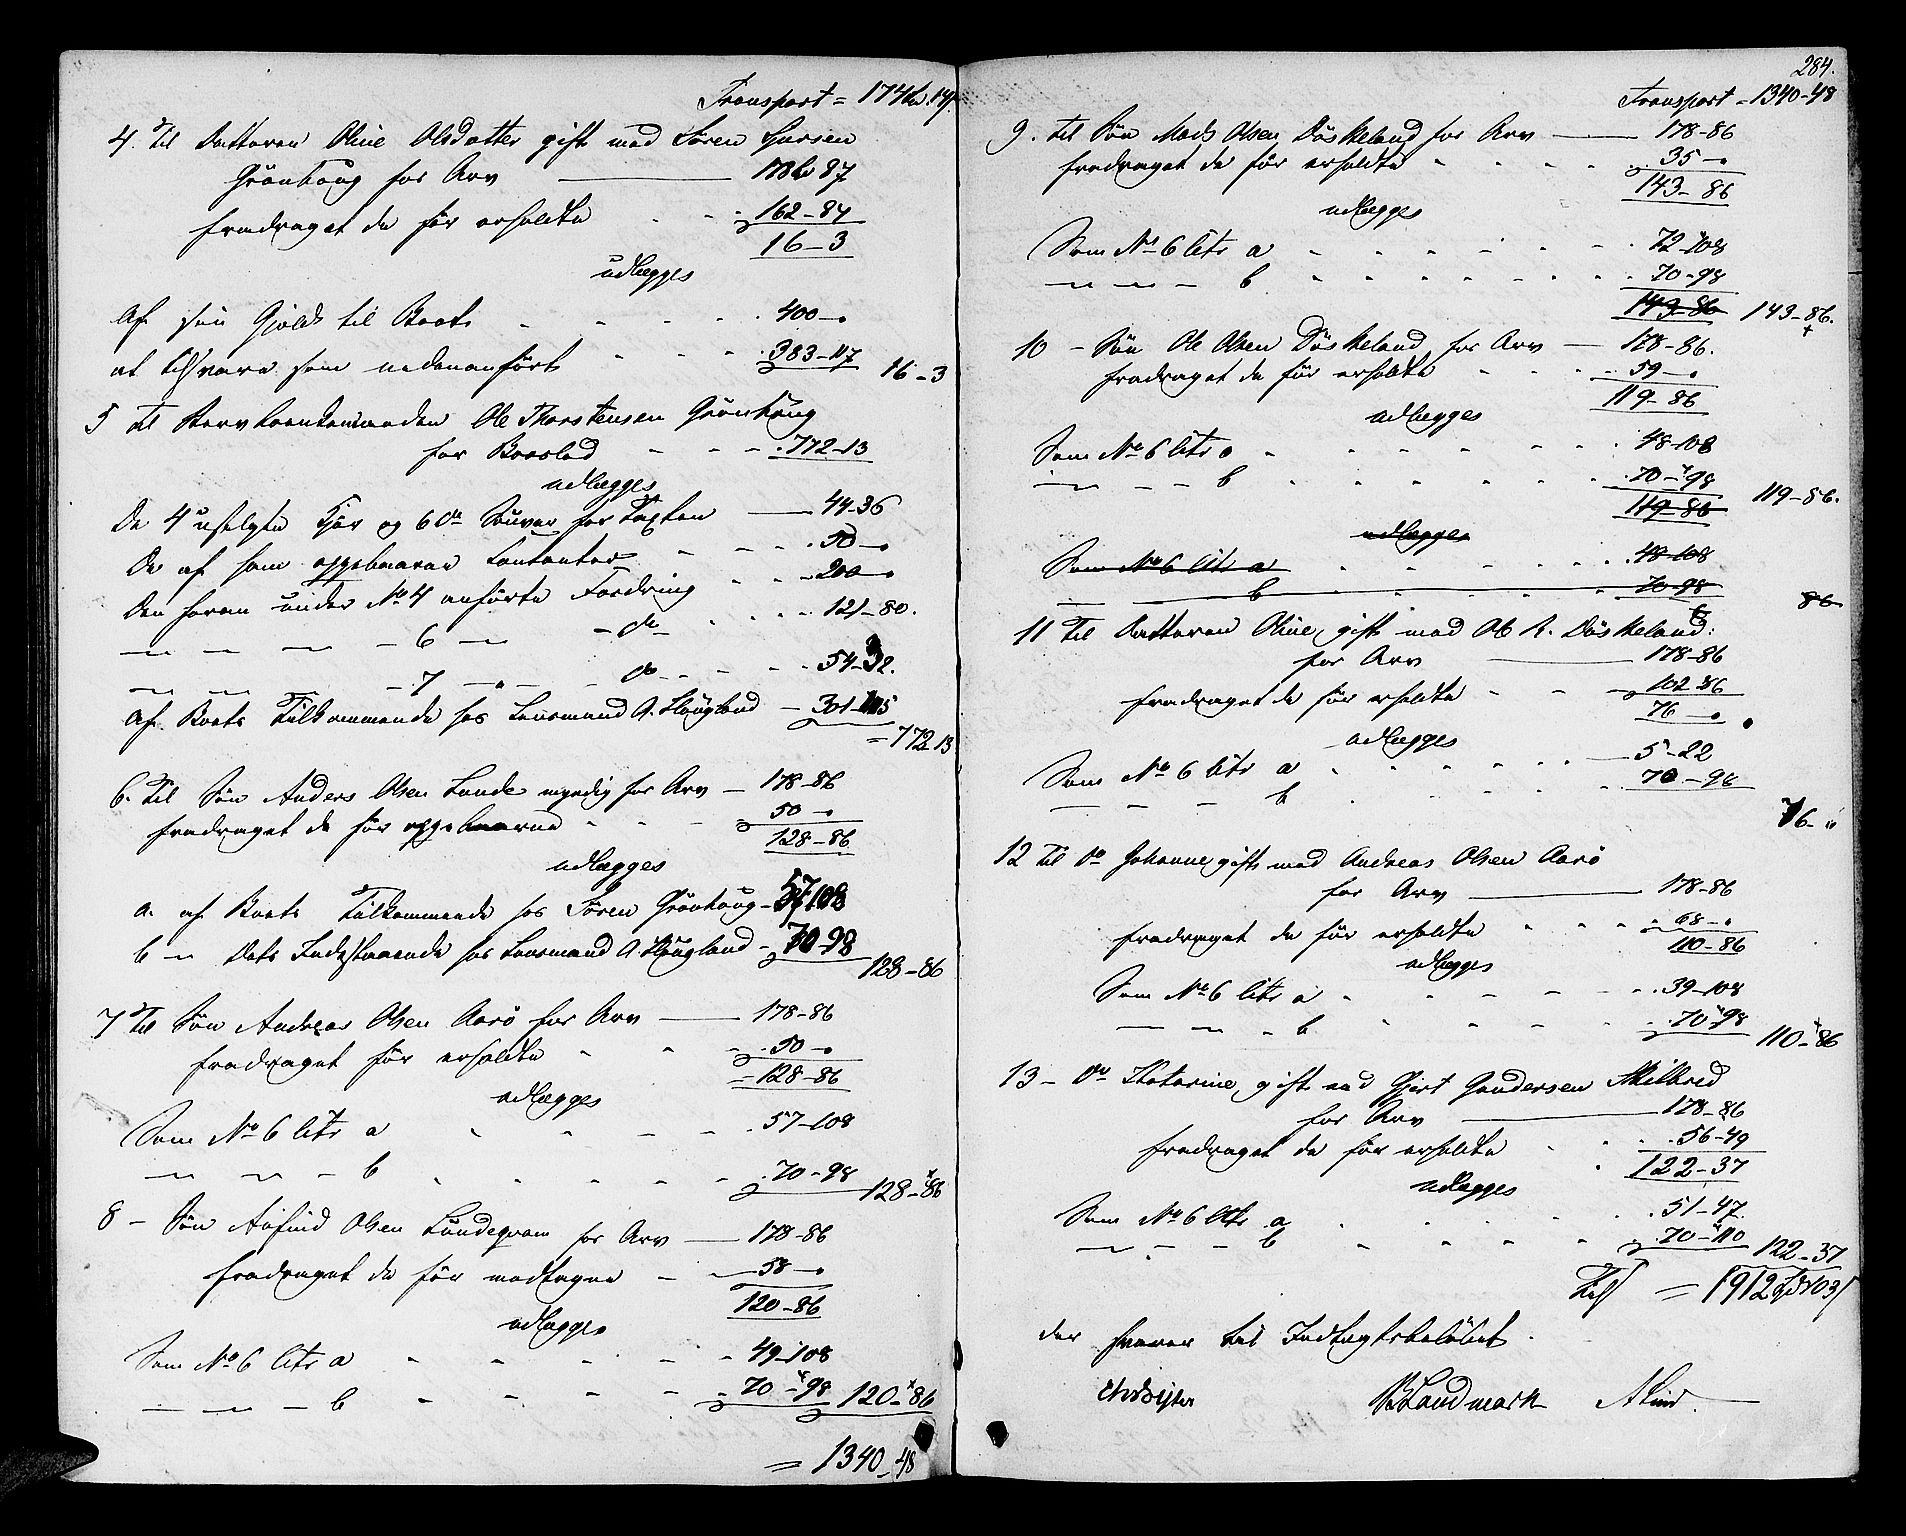 Transport = 174 14
4. Til Datteren Oline Olsdatter gift med Søren Larsen
Grönhoug for Arv 178 87
fradraget de før erholdte 162-84
16-3
udlægges
Af sin Gjeld til Boet 400-"
at tilsvare som nedenanført 383-117 16-3
5 Til Ole Thorstensen Grönhoug
for Boeslod 772-13
udlægges
De 4 usolgte Kjør og 6 do Souer for Taxten 44-36
De af ham oppebaarne Contanter 50-"
Den foran under No 4 anførte Fordring 200-"
— — — 6 — — do — 121-80.
— — — 7 — " — do — 54-32.
Af Boets Tilkommende hos Lensmand A. Hougland — 301-105
= 772 13
6. Til Søn Anders Olsen Lunde myndig for Arv — 178-86
fradraget de før oppebaarne 50-"
128-86
udlægges
a. af Boets Tilkommende hos Søren Grönhoug - 57-108
b — Dets Indestaaende hos Lensmand A. Hougland - 70-98
128-86
7 Til Søn Andreas Olsen Aarö for Arv — 178-86
fradraget før erholdte 50-"
= 128-86
udlægges
Som No 6 litr a 57-108
— — — b 70-98 128-86
8 — Søn Olsen Lundeqvam for Arv — 178-86
fradraget de før modtagne — 58-"
120-86
udlægges
Som No 6 litr a 49-108
— — — b 70-98 120-86
= 1340-48
284.
Transport = 1340-48
9. til Søn Mads Olsen Döskeland for Arv — 178-86
fradraget de før erholdte 35-"
143-86
udlægges
Som No 6 litr a 72-108
— — — b 70-98
143-86 143-86.
10 — Søn Ole Olsen Döskeland for Arv — 178-86.
fradraget de før erholdte 59-"
119-86
udlægges
Som No 6 litr a 48-108
— — — b 70-98
119-86 119-86.
udlægges
Som No 6 litr a 48-108
b 70-98
86
11 Til Datteren Oline gift med Ole R. Döskeland:
for Arv 178-86
fradraget de før erholdte 102-86
76-"
udlægges
Som No 6 litr a 5-22
— — — b 70-98
76-"
12 Til do Johanne gift med Andreas Olsen Aarö
for Arv 178-86
fradraget de før erholdte 68-"
110-86
udlægges
Som No 6 litr a 39-108
— — — b 70-98
110-86
13 — do Katarine gift med Gjert Gundersen
for Arv 178-86
fradraget de før erholdte 56-49
122-37
udlægges
Som No 6 litr a 51-47
— — — b 70-110 122-37
= 1912 103
der svarer til Indtægtsbeløbet.
Landmark